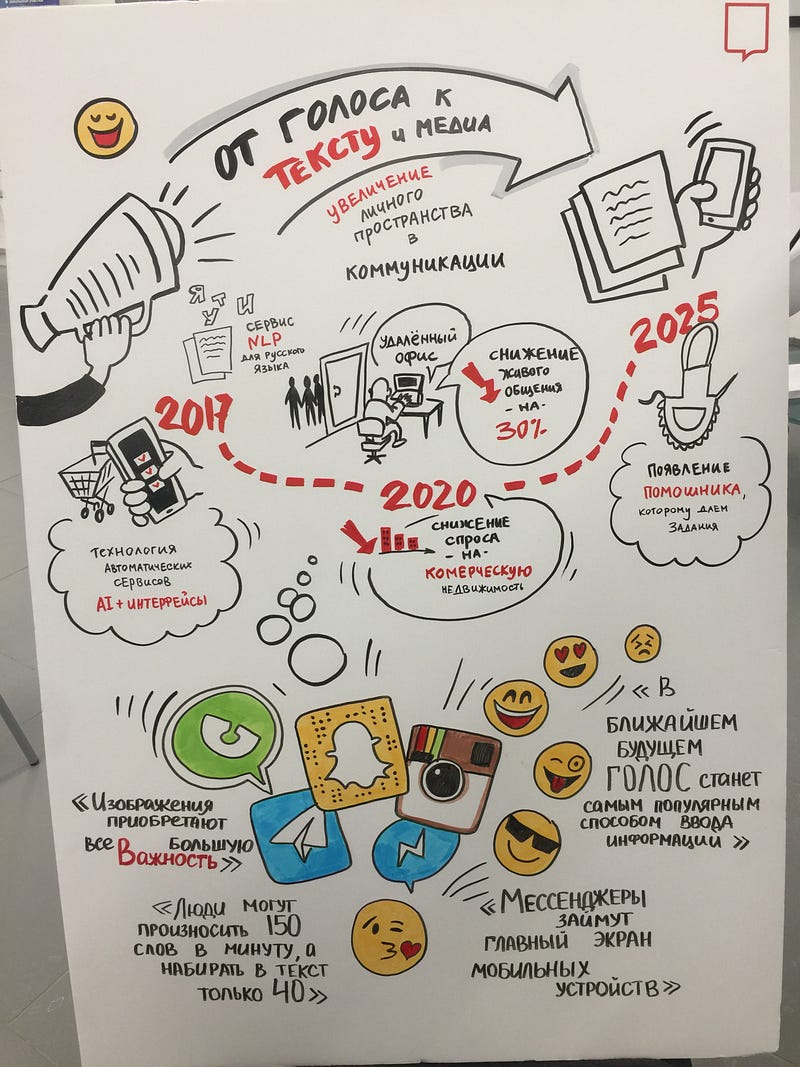 ОТ ГОЛОСА К
ТЕКСТУ И МЕДИА
УВЕЛИЧЕНИЕ
ЛИЧНОГО
ПРОСТРАНСТВА
В
КОММУНИКАЦИИ
Я Т И
У
СЕРВИС
NLP
ДЛЯ РУССКОГО
ЯЗЫКА
УДАЛЁННЫЙ
ОФИС
СНИЖЕНИЕ
ЖИВОГО
ОБЩЕНИЯ
- НА -
30%
2017
2020
2025
ТЕХНОЛОГИЯ
АВТОМАТИЧЕСКИХ
СЕРВИСОВ
AI + ИНТЕРФЕЙСЫ
СНИЖЕНИЕ
СПРОСА
- НА -
КОМЕРЧЕСКУЮ
НЕДВИЖИМОСТЬ
ПОЯВЛЕНИЕ
ПОМОШНИКА,
КОТОРОМУ ДАЕМ
ЗАДАНИЯ
«ИЗОБРАЖЕНИЯ
ПРИОБРЕТАЮТ
ВСЕ БОЛЬШУЮ
ВАЖНОСТЬ»
«В
БЛИЖАЙШЕМ
БУДУЩЕМ
ГОЛОС СТАНЕТ
САМЫМ ПОПУЛЯРНЫМ
СПОСОБОМ ВВОДА
ИНФОРМАЦИИ»
«ЛЮДИ МОГУТ
ПРОИЗНОСИТЬ 150
СЛОВ В МИНУТУ, А
НАБИРАТЬ В ТЕКСТ
ТОЛЬКО 40»
«МЕССЕНДЖЕРЫ
ЗАЙМУТ
ГЛАВНЫЙ ЭКРАН
МОБИЛЬНЫХ
УСТРОЙСТВ»